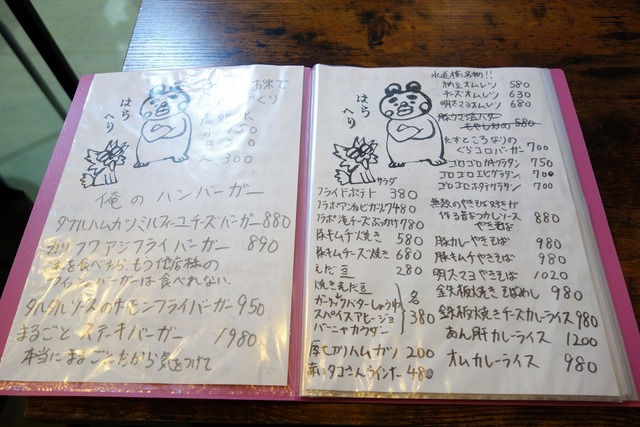 はら
へり
お米で
300
俺のハンバーガー
ダブルハムカツミルフィーユチーズバーガー880
カリフワアジフライバーガー 890
を食べたら、もう他店様の
フィッシュバーガーは食べれない.
タルタルソースのサーモンフライバーガー950
まるごとステーキバーガー 1980
本当にまるごとだから気をつけて
はら
へり
サラダ
フライドポテト 380
480
780
豚キムチ焼き 580
豚キムチチーズ焼き 680
えだ豆 280
焼きえだ豆
ガーリックバターしょうゆ
スパイスアヒージョ
バーニャカウダー
各
380
厚切りハムカツ 200
赤いタコさんウインナー 480
水道橋名物!!
納豆オムレツ 580
チーズオムレツ 630
明太マヨオムレツ 680
もやし炒め 580
たすところなりの
ぐらコロバーガー 700
ゴロゴロカキグラタン 750
ゴロゴロエビグラタン 700
ゴロゴロホタテグラタン 700
無類のやきそば好きが
作る昔なつかしソース
やきそば
880
豚カレーやきそば 980
豚キムチやきそば 980
明太マヨやきそば 1020
鉄板焼きそばめし 980
鉄板焼きチーズカレーライス980
あん肝カレーライス 1200
オムカレーライス 980